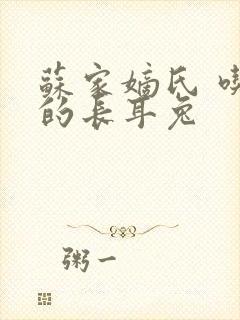 蘇家嫡氏
的長耳兔
粥一